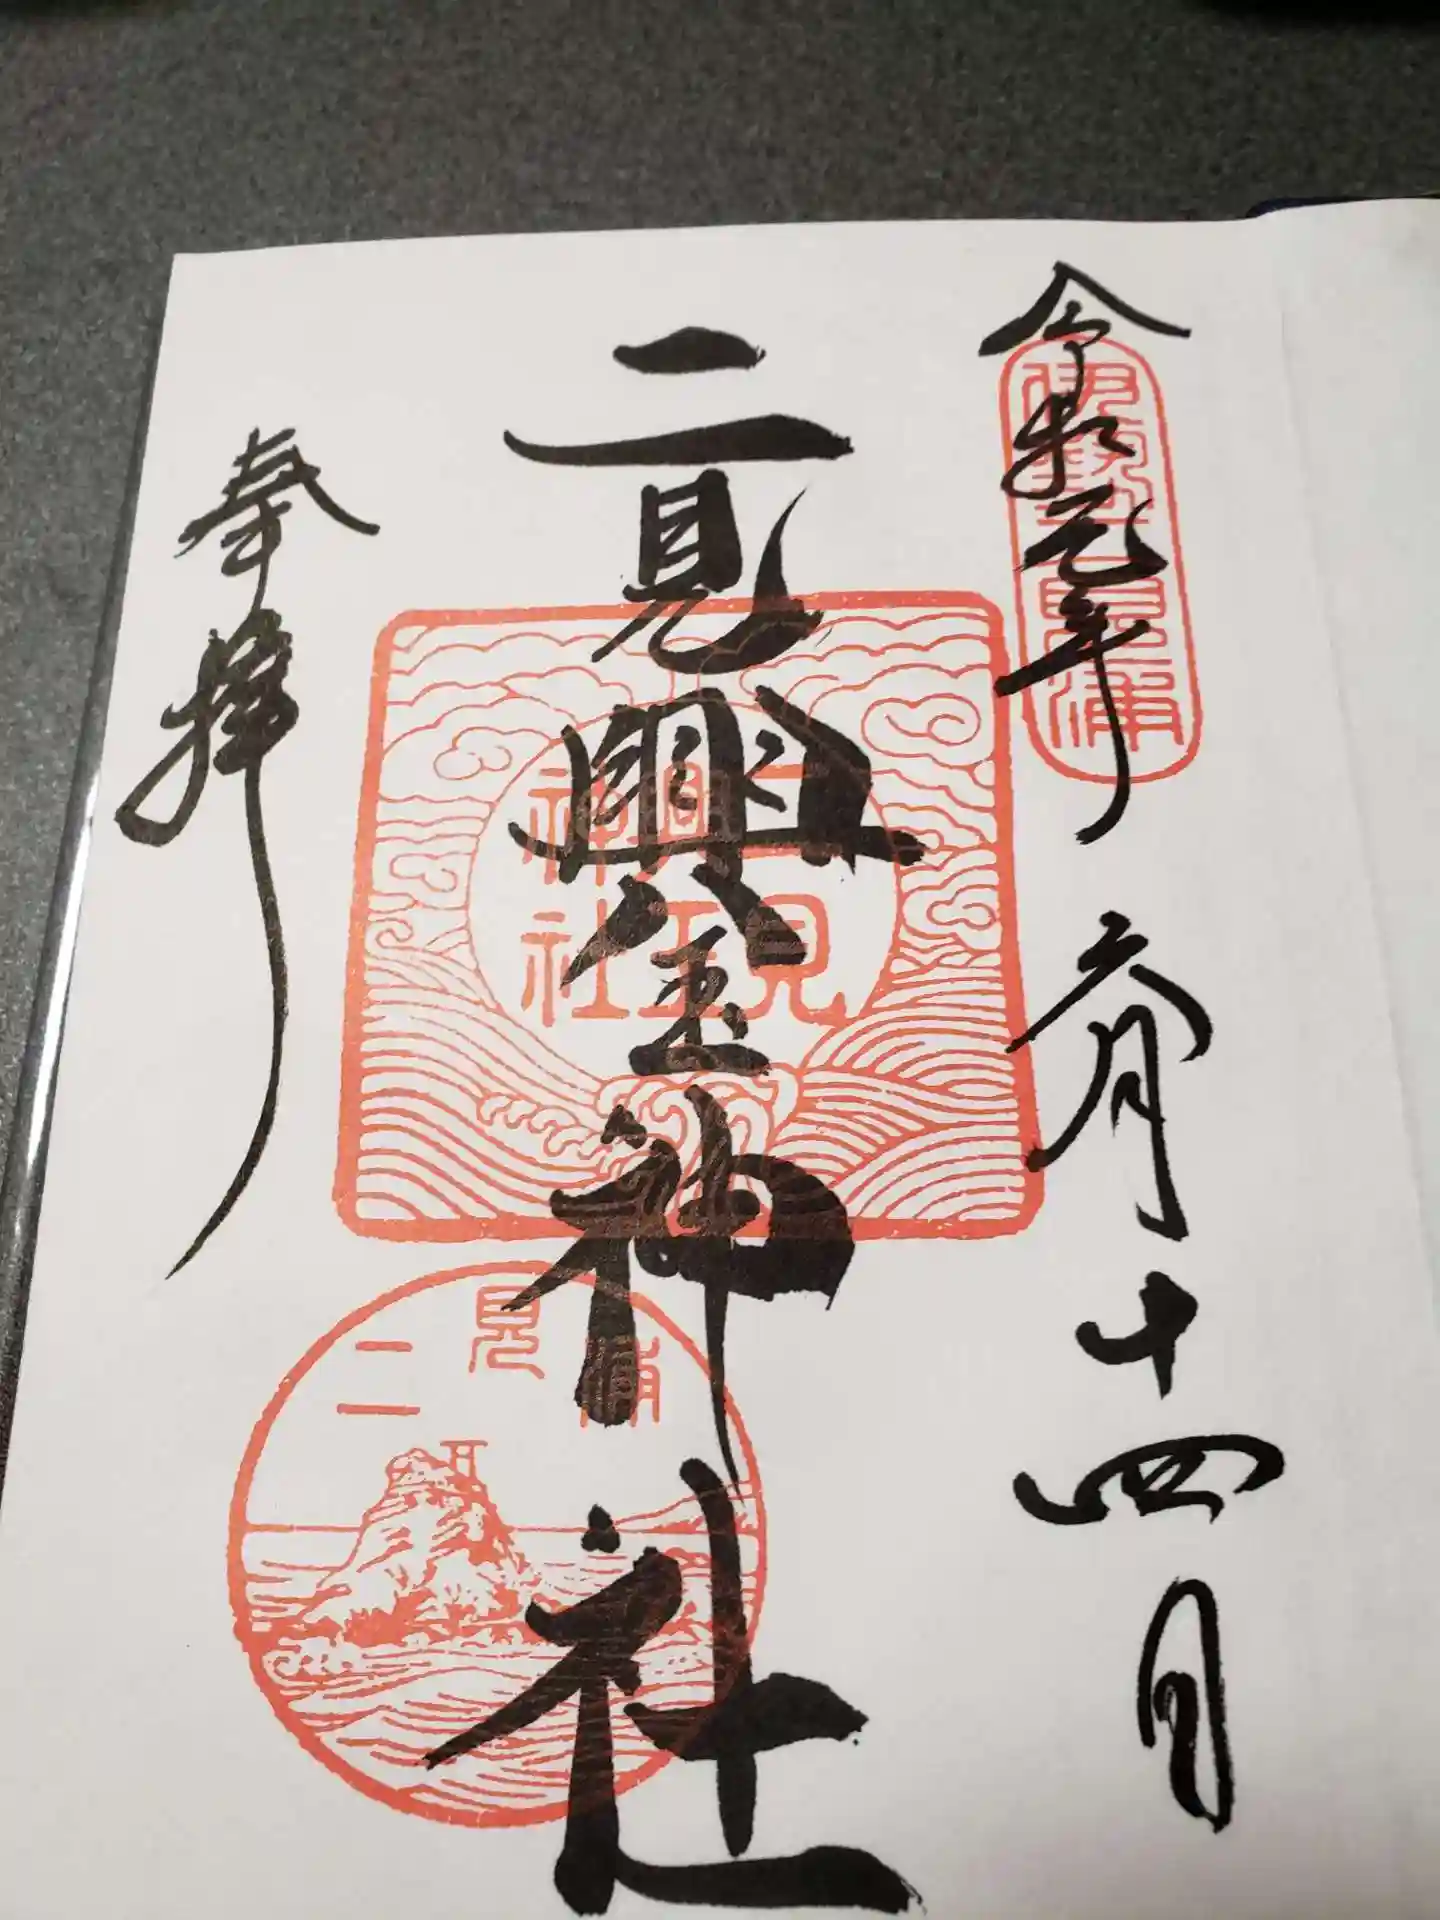 令和元年 六月十四日
伊勢二見浦
二見興玉神社
二見興玉神社
奉拝
二見浦